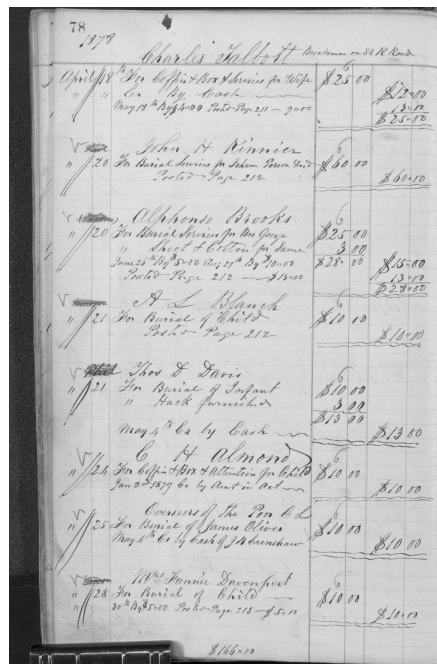 78
1878
Charles Talbott Brakeman on SS R Road
April 18th For Coffin & Box & Services for Wife $25 00
" " Cr By Cash $12=00
May 18th By $4=00 Posted Page 211 - 9=00 13=00
$25=00
John H Kinnier
" 20 For Burial Services for Person Died $60 00
Posted Page 212 $60=00
Alphonso Brooks
" 20 For Burial Services for Geo $25 00
" Sheet & Cotton for Same 3 00
June 25th By $5=00 Aug 29th By $10=00 $28= 00 $15=00
Posted Page 212 - $13=00 13=00
$28=00
A L Blanch
" 21 For Burial of Child $10 00
Posted Page 212 $10=00
Thos D Davis
" 21 For Burial of Infant $10 00
" Hack furnished 3 00
$13 00
May 4th Cr by Cash $13 00
C H Almond
" 24 For Coffin & Box & Attention for Child $10 00
Jan 3rd 1879 Cr by Amt in Act $10 00
Overseers of the Poor C L
" 25 For Burial of James Oliver $10 00
May 4th Cr by Cash of J H Crenshaw $10 00
Mrs Fannie Davenport
" 28 For Burial of Child $10 00
30th By $5=00 Posted Page 213 - $5=00 $10=00
$166=00